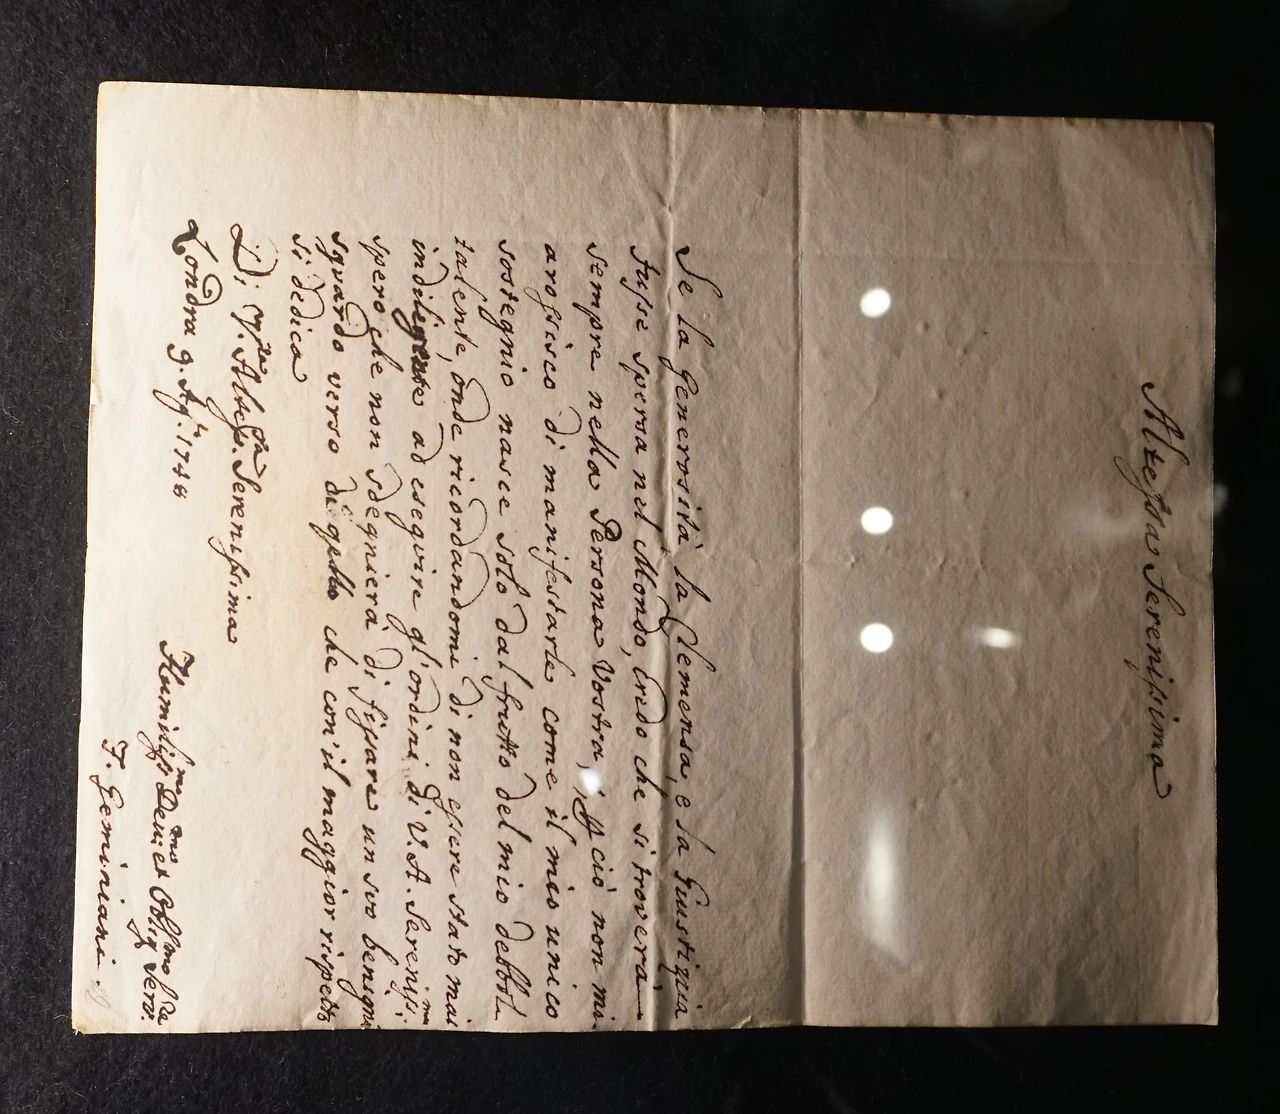 Altessa Serenissima
Se la Generosità la Clemensa, e la Giustizia
fusse spersa nel Mondo, Credo che si troverà
sempre nella Persona Vostra, ciò non mi
arossisco di manifestarle come il mio unico
sostegnio nasce solo dal frutto del mio debbole
talente, onde ricordandomi di non essere stato mai
indiligente ad eseguire gl'ordini di V. A. Serenissi.ma
spero che non sdegnierà di fissare un suo benigno
sguardo verso di quello che con'il maggior rispetto
si dedica
Di V.ra Altess.a Serenissima
Londra 9. Ag.to 1748
Humiliss.mo Dev.mo et Obblig.mo Serv.
F. Geminiani.